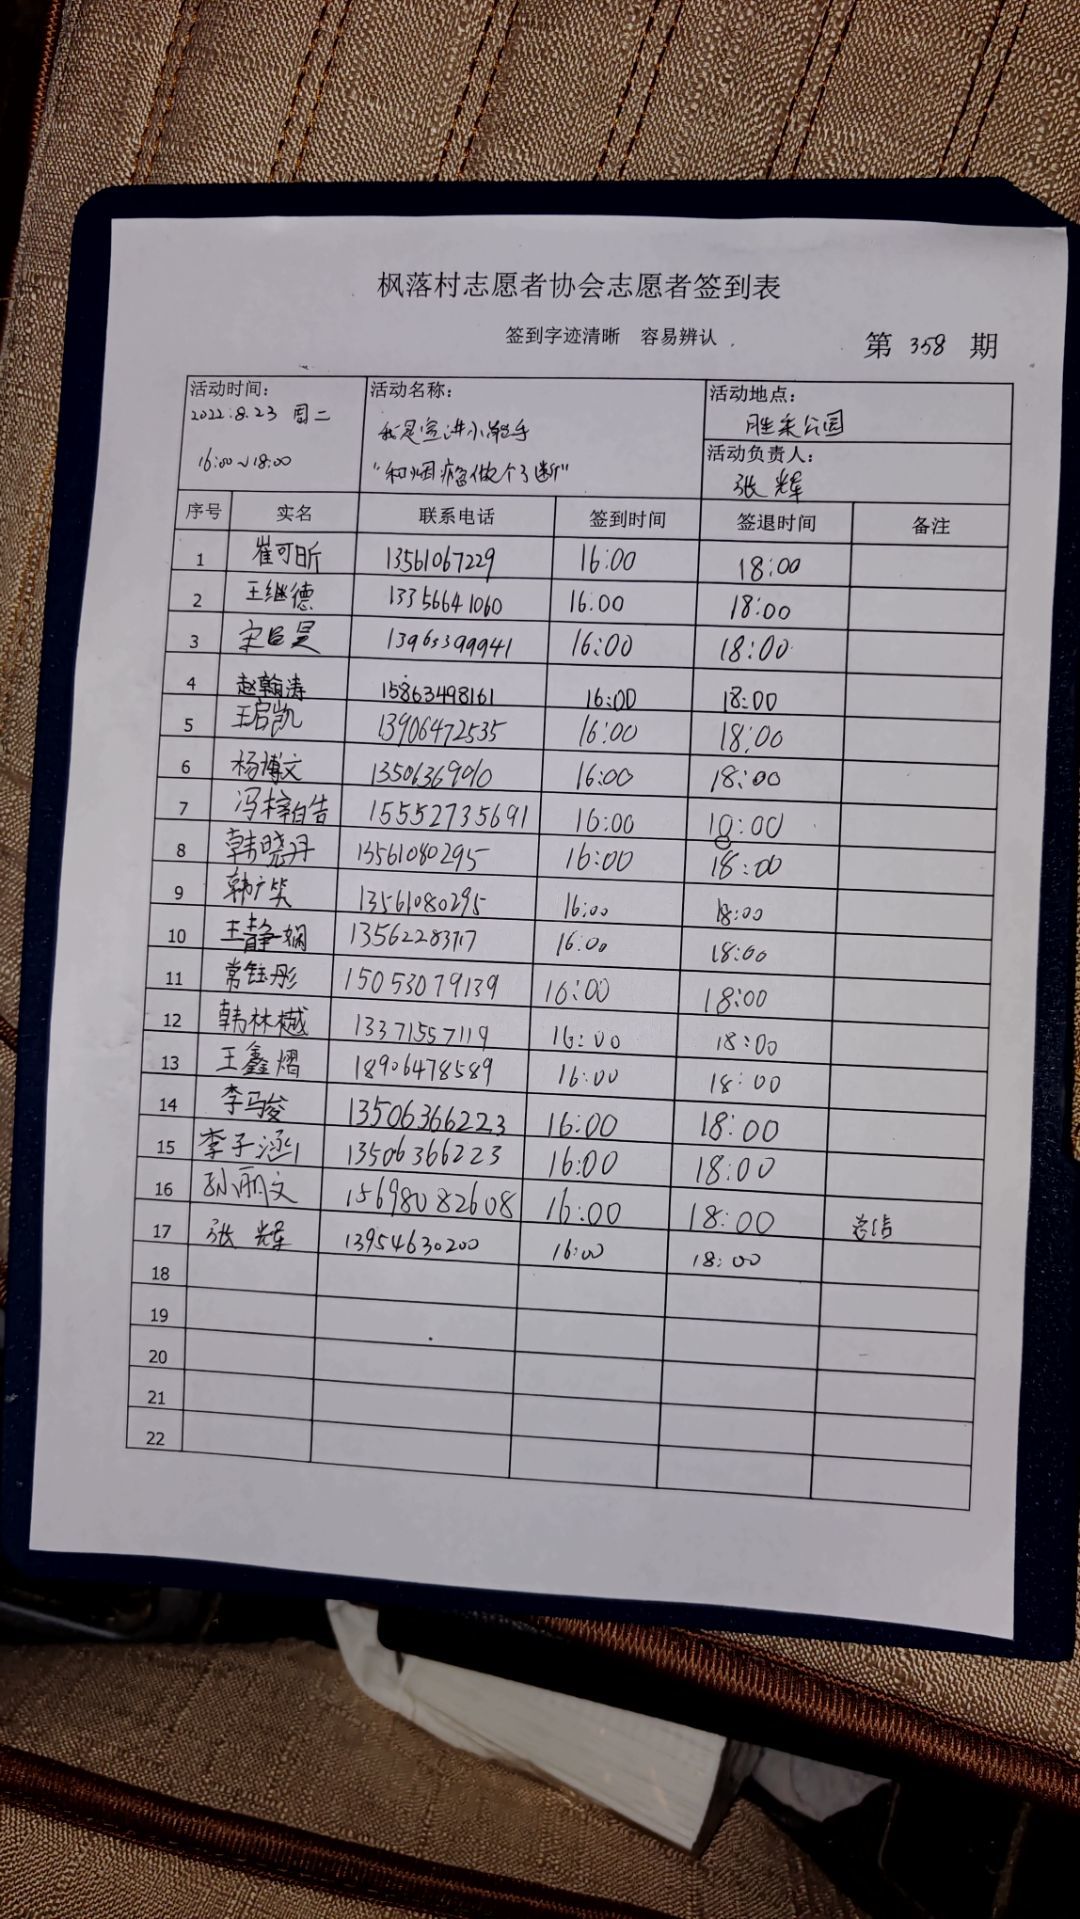 枫落村志愿者协会志愿者签到表
签到字迹清晰 容易辨认
第 358 期
活动时间：
2022.8.23 周二
16:00~18:00
活动名称：
我是宣讲小能手
"和烟瘾做个了断"
活动地点：
胜采公园
活动负责人：
张辉
序号 实名 联系电话 签到时间 签退时间 备注
1 崔可昕 13561067229 16:00 18:00
2 王继德 13356641060 16:00 18:00
3 宋昊 13963399941 16:00 18:00
4 赵翰涛 15863498161 16:00 18:00
5 王启凯 13906472535 16:00 18:00
6 杨博文 16:00 18:00
7 冯梓皓 15552735691 16:00
8 韩晓丹 13561080295 16:00 18:00
9 韩广 13561080295 16:00 18:00
10 王静娴 16:00 18:00
11 常钰彤 15053079139 16:00 18:00
12 韩林樾 13371557119 16:00 18:00
13 王鑫熠 18906478589 16:00 18:00
14 李马俊 13506366223 16:00 18:00
15 李子涵 13506366223 16:00 18:00
16 孙丽文 15698082608 16:00 18:00
17 张辉 13954630200 16:00 18:00
18
19
20
21
22